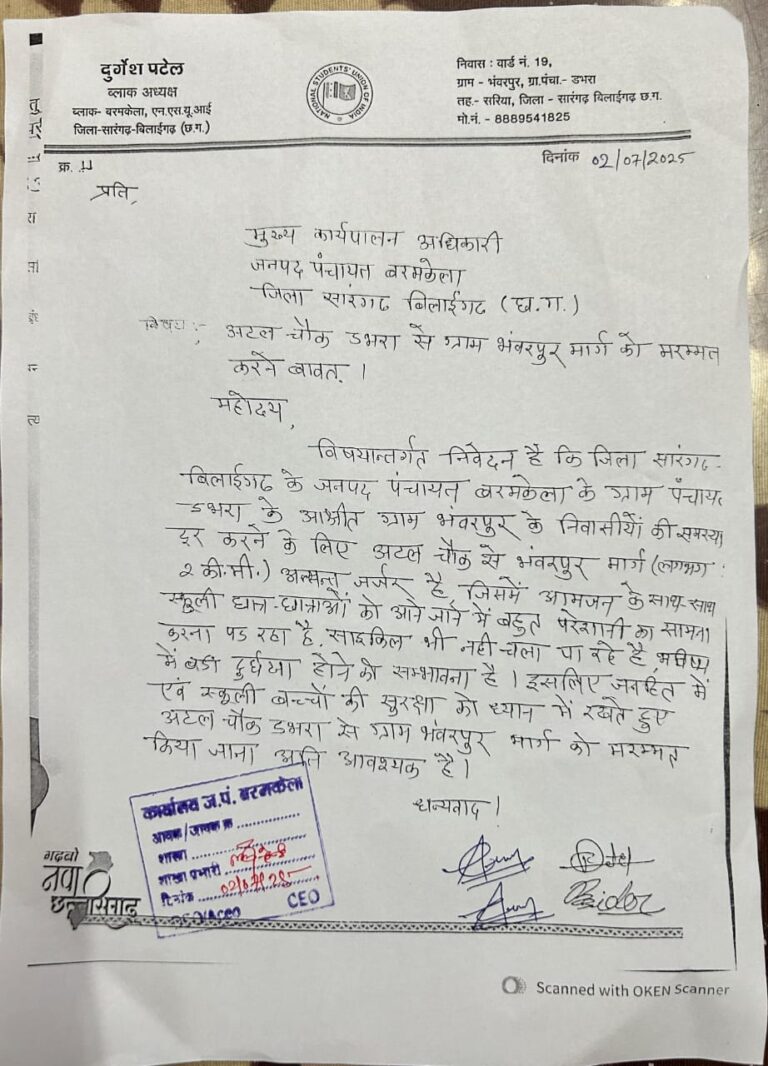 दुर्गेश पटेल
ब्लाक अध्यक्ष
ब्लाक- बरमकेला, एन.एस.यू.आई
जिला-सारंगढ़-बिलाईगढ़ (छ.ग.)
NATIONAL STUDENTS' UNION OF INDIA
निवास : वार्ड नं. 19,
ग्राम - भंवरपुर, ग्रा.पंचा.- डभरा
तह.- सरिया, जिला - सारंगढ़ बिलाईगढ़ छ.ग.
मो.नं. - 8889541825
क्र. 11
दिनांक 02/07/2025
प्रति,
मुख्य कार्यपालन अधिकारी
जनपद पंचायत बरमकेला
जिला सारंगढ बिलाईगढ (छ.ग.)
विषय :- अटल चौक डभरा से ग्राम भंवरपुर मार्ग को मरम्मत
करने बावत् ।
महोदय,
विषयान्तर्गत निवेदन है कि जिला सारंगढ-
बिलाईगढ के जनपद पंचायत बरमकेला के ग्राम पंचायत
डभरा के आश्रीत ग्राम भंवरपुर के निवासीयों की समस्या
दूर करने के लिए अटल चौक से भंवरपुर मार्ग (लगभग
२ कि.मी.) अत्यन्त जर्जर है, जिसमें आमजन के साथ-साथ
स्कूली छात्र-छात्राओं को आने जाने में बहुत परेशानी का सामना
करना पड रहा है, साइकिल भी नही चला पा रहे है, भविष्य
में बडी दुर्घटना होने की सम्भावना है । इसलिए जनहित में
एवं स्कूली बच्चों की सुरक्षा को ध्यान में रखते हुए
अटल चौक डभरा से ग्राम भंवरपुर मार्ग को मरम्मत
किया जाना अति आवश्यक है ।
धन्यवाद ।
कार्यालय ज.पं. बरमकेला
आवक/जावक क्र
शाखा
शाखा प्रभारी
दिनांक 02/07/25
CEO
गढ़बो
नवा
छत्तीसगढ़
Scanned with OKEN Scanner